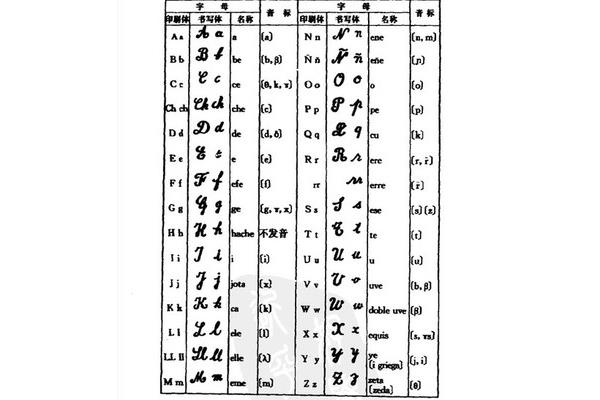 字 母 音 标 字 母 音 标
印刷体 书写体 名称 印刷体 书写体 名称
A a A a a (a) N n N n ene (n, m)
B b B b be (b, β) Ñ ñ Ñ ñ eñe (ɲ)
C c C c ce (θ, k, ɤ) O o O o o (o)
Ch ch Ch ch che (c) P p P p pe (p)
D d D d de (d, δ) Q q Q q cu (k)
E e E e e (e) R r R r ere (r, r̄)
F f F f efe (f) rr rr erre (r̄)
G g G g ge (g, ɤ, x) S s S s ese (s) (z)
H h H h hache 不发音 T t T t te (t)
I i I i i (i) U u U u u (u)
J j J j jota (x) V v V v uve (b, β)
K k K k ca (k) W w W w doble uve (β)
L l L l ele (l) X x X x equis (s, ɤs)
LL ll Ll ll elle (λ) Y y Y y ye (i griega) (j, i)
M m M m eme (m) Z z Z z zeta (zeda) (θ)